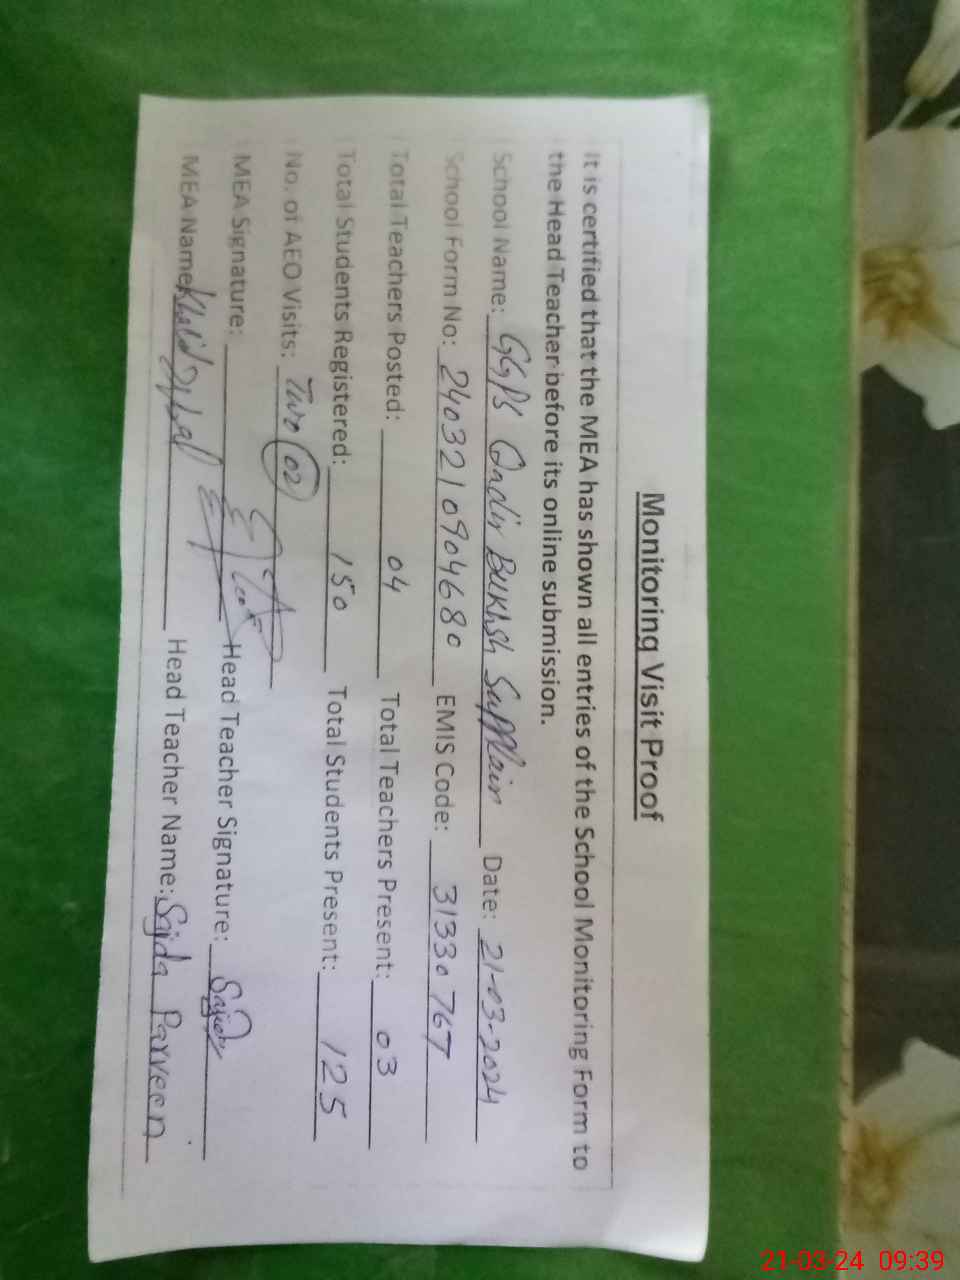 Monitoring Visit Proof
It is certified that the MEA has shown all entries of the School Monitoring Form to
the Head Teacher before its online submission.
School Name: GGPS Qadir Bukhsh Supplain Date: 21-03-2024
School Form No: 2403210904680 EMIS Code: 31330767
Total Teachers Posted: 04 Total Teachers Present: 03
Total Students Registered: 150 Total Students Present: 125
No. of AEO Visits: Two 02
MEA Signature: Head Teacher Signature: Sajida
MEA Name: Khalid Iqbal Head Teacher Name: Sajda Parveen
21-03-24 09:39